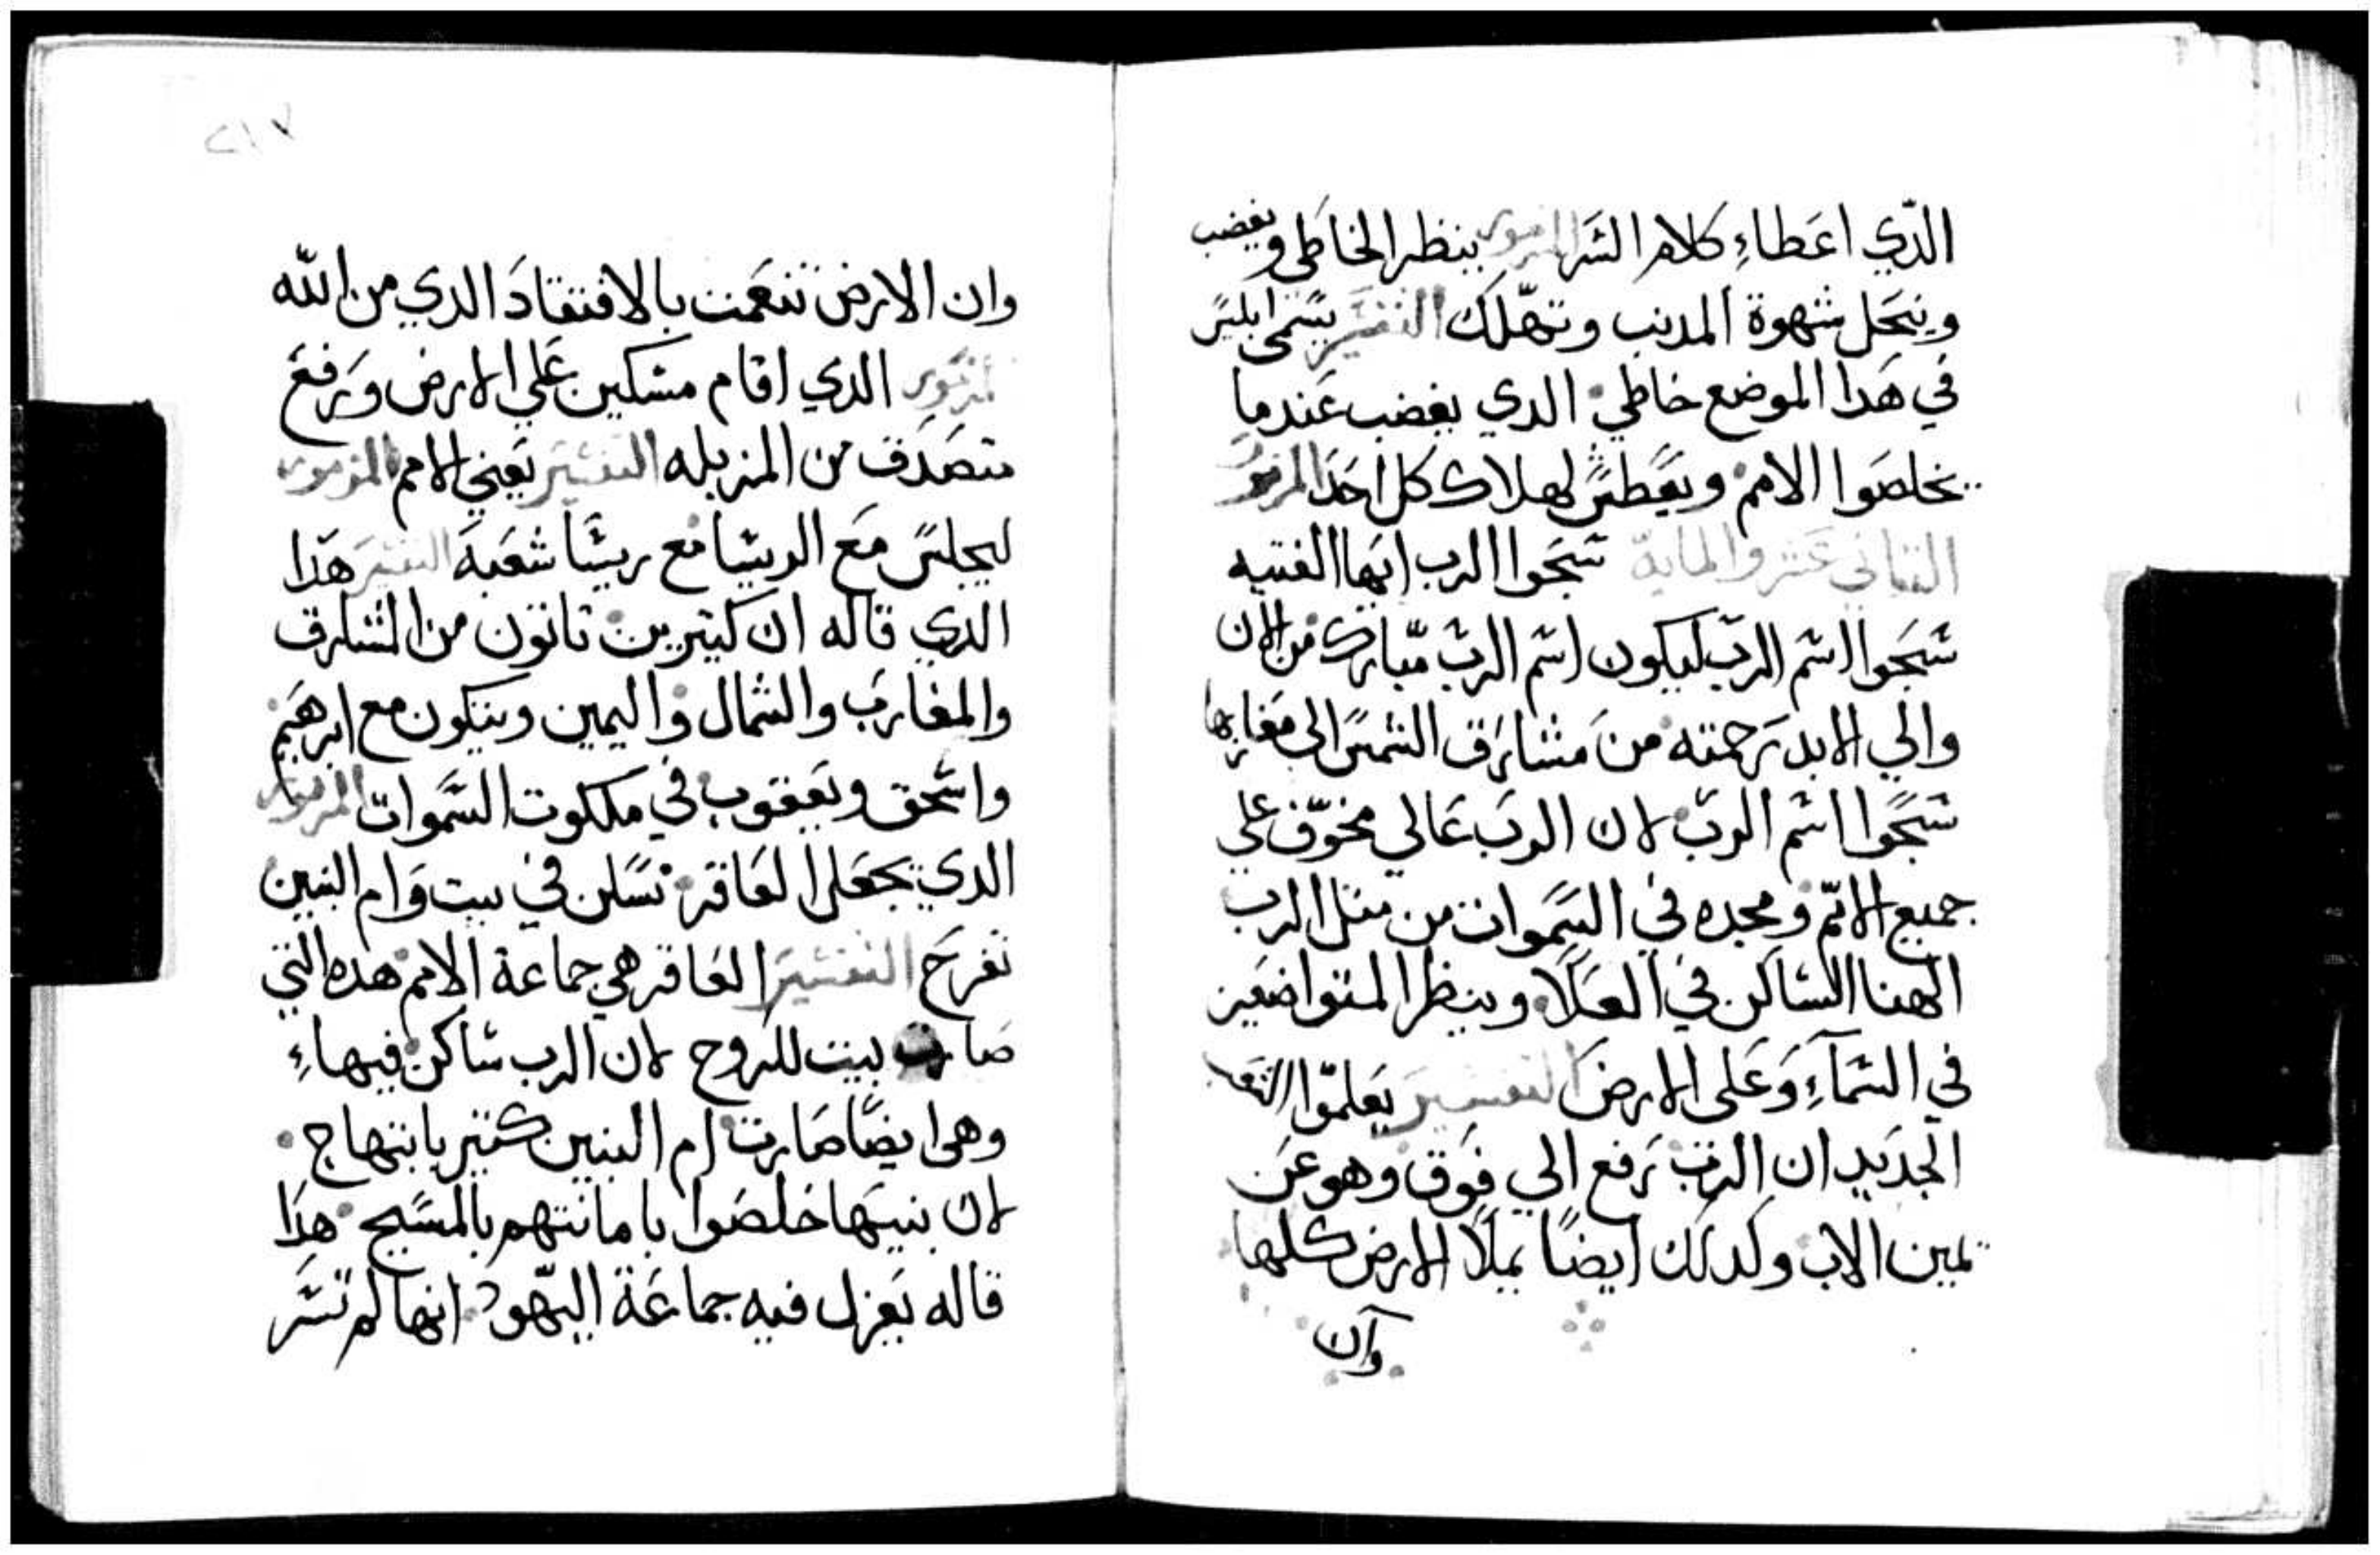 الذي اعطاء كلام الشر المزمور ينظر الخاطي ويغضب
وينحل شهوة المدنب وتهلك التفسير يسمى ابليس
في هدا الموضع خاطي الدي يغضب عندما
يخلصوا الامم ويعطس لهلاك كل احد المزمور
التاني عشر والمايه سبحوا الرب ايها الفتيه
سبحوا اسم الرب ليكون اسم الرب مبارك من الان
والي الابد رحمته من مشارق الشمس الى مغاربها
سبحوا اسم الرب لان الرب عالي مخوف علي
جميع الامم ومجده في السموات من متل الرب
الهنا الساكن في العلا وينظر المتواضعين
في السماء وعلى الارض التفسير يعلموا الشعب
الجديد ان الرب رفع الي فوق وهو عن
يمين الاب وكدلك ايضا يملا الارض كلها
وان
٢١٧
وان الارض تنعمت بالافتقاد الدي من الله
مزمور الدي اقام مسكين علي الارض ورفع
متصدف من المزبله التفسير يعني الامم المزمور
ليجلس مع الريسا مع ريسا شعبه التفسير هدا
الدي قاله ان كتيرين تاتون من المشارق
والمغارب والشمال واليمين ويتكون مع ابرهيم
واسحق ويعقوب في ملكوت السموات المزمور
الدي يجعل العاقر تسكن في بيت وام البنين
تفرح التفسير العاقر هي جماعة الامم هده التي
صارت بيت للروح لان الرب ساكن فيهاء
وهى ايضا صارت ام البنين كتير بابتهاج
لان بنيها خلصوا بامانتهم بالمسيح هدا
قاله يعزل فيه جماعة اليهود انها لم تسر